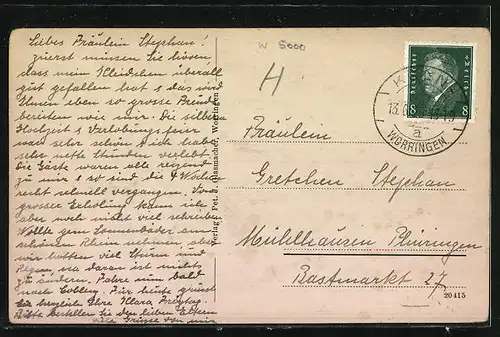 Liebes Fräulein Stephan!
zuerst müssen Sie hören
dass mein Kleidchen überall
gut gefallen hat & das wir
Ihnen eben so grosse Freude
bereiten wie mir. Die silberne
Hochzeit & Verlobungsfeier
war sehr schön & ich habe
sehr nette Stunden verlebt
Die Gäste waren alle reizend
zu mir & so sind die 4 Wochen
recht schnell vergangen. Von
grosser Erholung kann ich
aber wohl nicht viel schreiben
Wollte gern Sonnenbäder am
schönen Rhein nehmen, aber
wir hatten viel Sturm und
Regen, na daran ist nichts
zu ändern. Fahre nun bald
nach Coblenz. Für heute grüsst
Sie herzlich Ihre Klara Freytag.
Bitte bestellen Sie den lieben Eltern
Grüsse von mir
Verlag Pet. Worringen
W 5000
H
Deutsches Reich
8 8
KÖLN
13.
a
WORRINGEN.
Fräulein
Gretchen Stephan
Mühlhausen Thüringen
Rastmarkt 27
20415